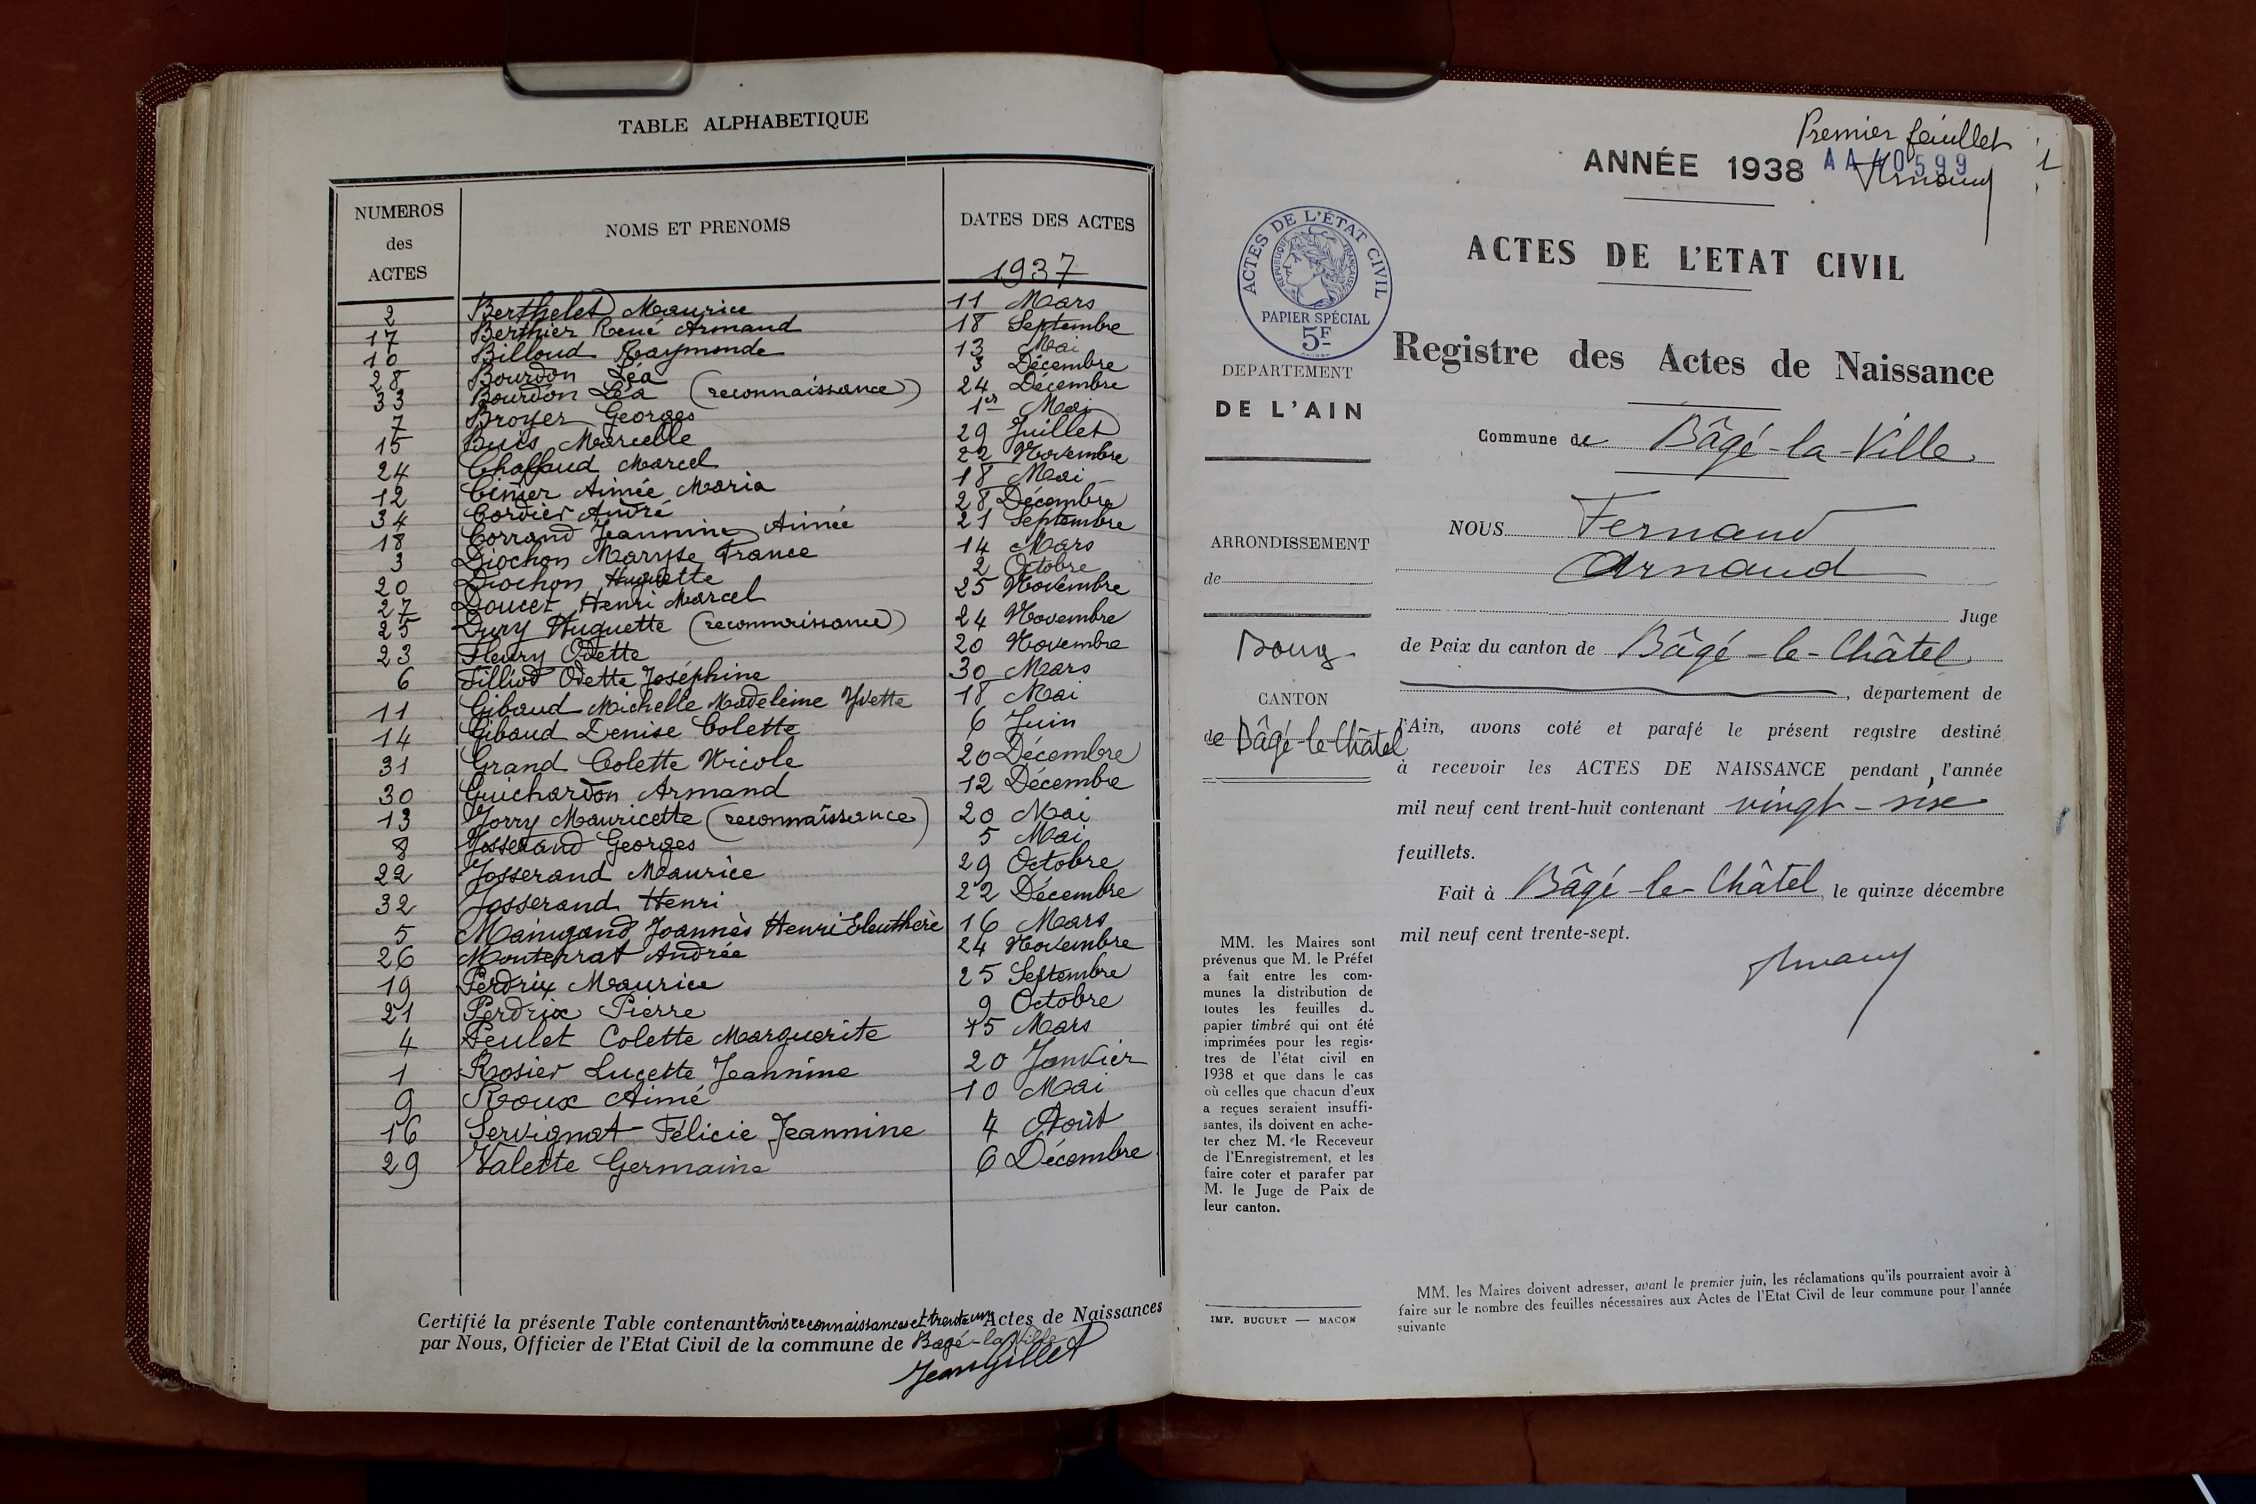 TABLE ALPHABETIQUE
NUMEROS des ACTES
NOMS ET PRENOMS
DATES DES ACTES
1937
2 Berthelet Maurice 11 Mars
17 Berthier René Armand 18 Septembre
10 Billoud Raymonde 13 Mai
28 Bourdon Léa 3 Décembre
33 Bourdon Léa (reconnaissance) 24 Décembre
7 Broyer Georges 1er Mai
15 Buis Marcelle 29 Juillet
24 Chaffaud Marcel 22 Novembre
12 Cinier Aimée Maria 18 Mai
34 Cordier André 28 Décembre
18 Corrand Jeannine Aimée 21 Septembre
3 Diochon Maryse France 14 Mars
20 Diochon Huguette 2 Octobre
27 Doucet Henri Marcel 25 Novembre
25 Dury Huguette (reconnaissance) 24 Novembre
23 Fleury Odette 20 Novembre
6 Filliod Odette Joséphine 30 Mars
11 Gibaud Michelle Madeleine Yvette 18 Mai
14 Gibaud Denise Colette 6 Juin
31 Grand Colette Nicole 20 Décembre
30 Guichardon Armand 12 Décembre
13 Jorry Mauricette (reconnaissance) 20 Mai
8 Josserand Georges 5 Mai
22 Josserand Maurice 29 Octobre
32 Josserand Henri 22 Décembre
5 Mainigand Joannès Henri Eleuthère 16 Mars
26 Monterrat Andrée 24 Novembre
19 Perdrix Maurice 25 Septembre
21 Perdrix Pierre 9 Octobre
4 Peulet Colette Marguerite 15 Mars
1 Rosier Lucette Jeannine 20 Janvier
9 Roux Aimé 10 Mai
16 Servignat Félicie Jeannine 4 Août
29 Valette Germaine 6 Décembre
Certifié la présente Table contenant trois reconnaissances et trente un Actes de Naissances
par Nous, Officier de l'Etat Civil de la commune de Bagé-la-Ville
Jean Gillet
Premier feuillet
1
ANNÉE 1938
AA 40599
Arnaud
ACTES DE L'ÉTAT CIVIL
REPUBLIQUE FRANÇAISE
PAPIER SPÉCIAL
5F
ACTES DE L'ETAT CIVIL
Registre des Actes de Naissance
DEPARTEMENT
DE L'AIN
Commune de Bâgé-la-Ville
NOUS Fernand
Arnaud
Juge
de Paix du canton de Bâgé-le-Châtel
, département de
l'Ain, avons coté et parafé le présent registre destiné
à recevoir les ACTES DE NAISSANCE pendant l'année
mil neuf cent trent-huit contenant vingt-six
feuillets.
Fait à Bâgé-le-Châtel, le quinze décembre
mil neuf cent trente-sept.
Arnaud
ARRONDISSEMENT
de
Bourg
CANTON
de Bâgé-le-Châtel
MM. les Maires sont
prévenus que M. le Préfet
a fait entre les com-
munes la distribution de
toutes les feuilles du
papier timbré qui ont été
imprimées pour les regis-
tres de l'état civil en
1938 et que dans le cas
où celles que chacun d'eux
a reçues seraient insuffi-
santes, ils doivent en ache-
ter chez M. le Receveur
de l'Enregistrement, et les
faire coter et parafer par
M. le Juge de Paix de
leur canton.
IMP. BUGUET — MACON
MM. les Maires doivent adresser, avant le premier juin, les réclamations qu'ils pourraient avoir à
faire sur le nombre des feuilles nécessaires aux Actes de l'Etat Civil de leur commune pour l'année
suivante